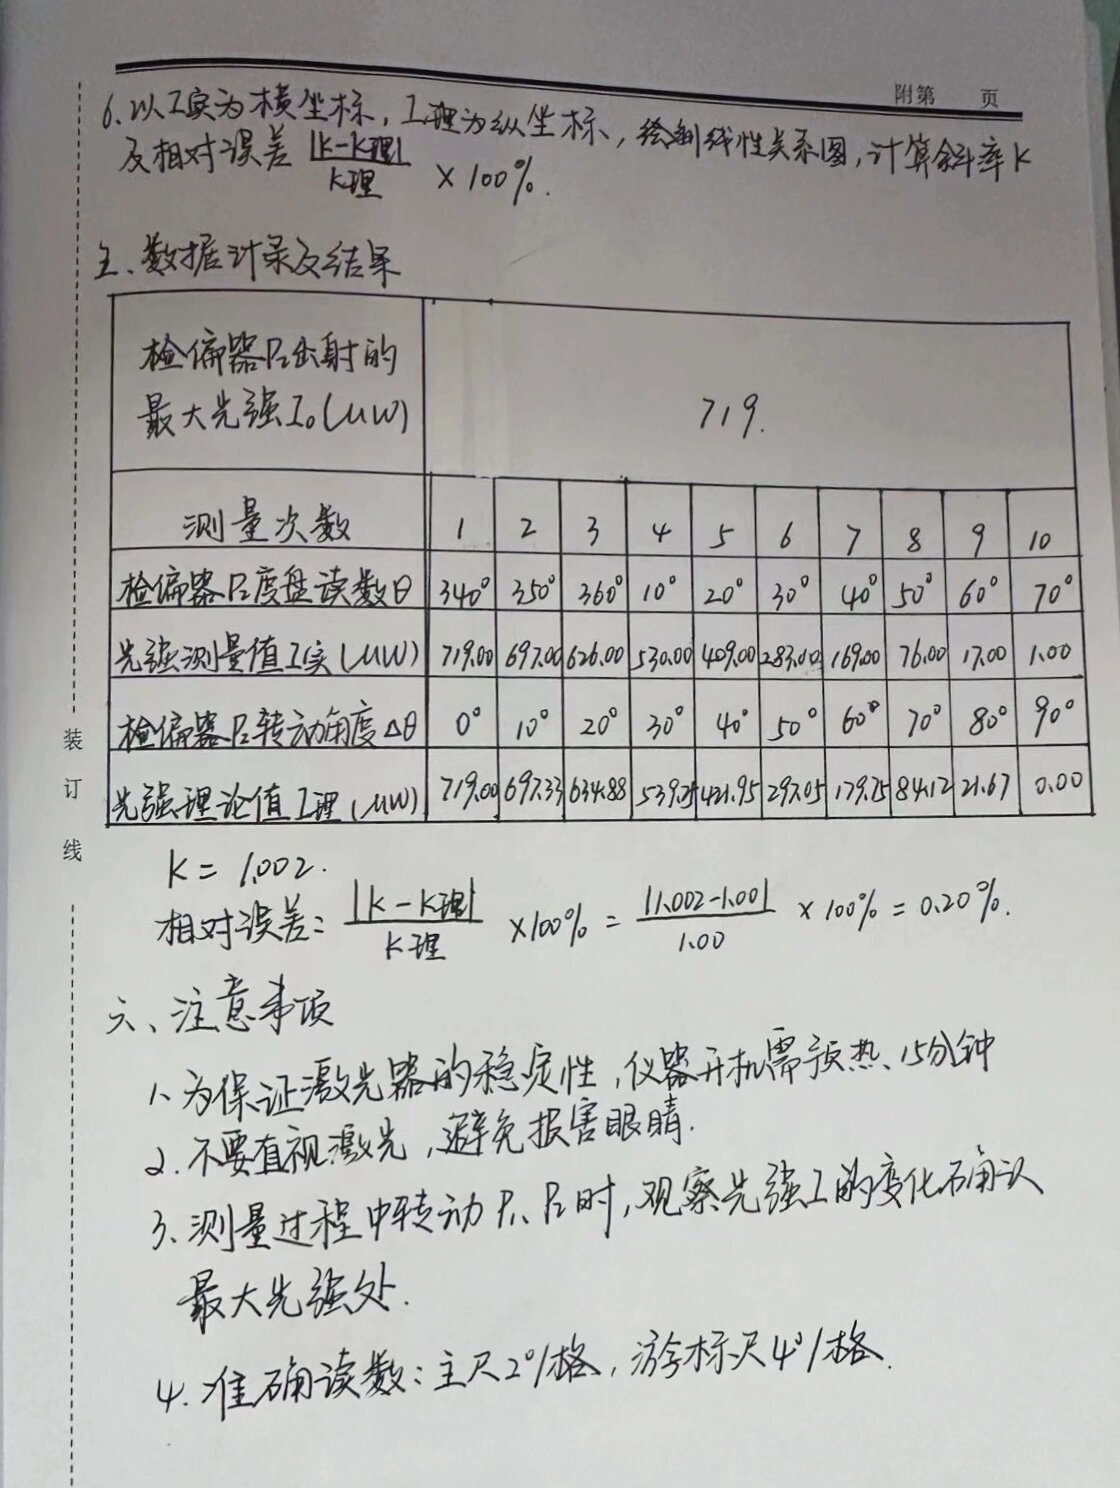 附第 页
6.以I实为横坐标,I理为纵坐标、,绘制线性关系图,计算斜率K
及相对误差 |K-K理|/K理 ×100%.
五、数据计录及结果
检偏器P₂出射的最大光强I₀(μW) 719.
测量次数 1 2 3 4 5 6 7 8 9 10
检偏器P₂度盘读数θ 340° 350° 360° 10° 20° 30° 40° 50° 60° 70°
光强测量值I实(μW) 719.00 697.00 626.00 530.00 409.00 283.00 169.00 76.00 17.00 1.00
检偏器P₂转动角度Δθ 0° 10° 20° 30° 40° 50° 60° 70° 80° 90°
光强理论值I理(μW) 719.00 697.33 634.88 539.25 421.95 297.05 179.75 84.12 21.67 0.00
K=1.002.
相对误差: |K-K理|/K理 ×100% = |1.002-1.00|/1.00 ×100% = 0.20%.
六、注意事项
1、为保证激光器的稳定性,仪器开机需预热、15分钟
2.不要直视激光,避免损害眼睛.
3、测量过程中转动P₁、P₂时,观察光强I的变化确认
最大光强处.
4.准确读数:主尺2°/格,游标尺4°/格.
装
订
线